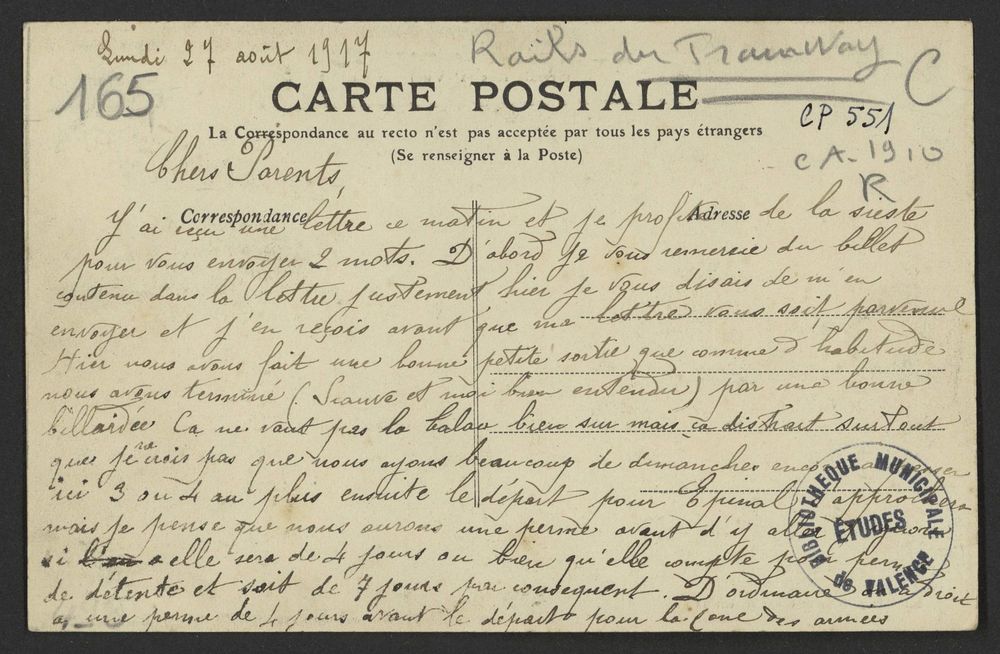 Lundi 27 août 1917
Rails du Tramway
C
165
CARTE POSTALE
CP 551
La Correspondance au recto n'est pas acceptée par tous les pays étrangers
(Se renseigner à la Poste)
CA. 1910
R
Chers Parents,
Correspondance
Adresse
J'ai reçu une lettre ce matin et je profite de la sieste
pour vous envoyer 2 mots. D'abord je vous remercie du billet
contenu dans la lettre justement hier je vous disais de m'en
envoyer et j'en reçois avant que ma lettre vous soit parvenue
Hier nous avons fait une bonne petite sortie que comme d'habitude
nous avons terminé ( et moi bien entendu) par une bonne
billardée Ca ne vaut pas la balao bien sur mais ça distrait surtout
que je ne crois pas que nous ayons beaucoup de dimanches encore a passer
ici 3 ou 4 au plus ensuite le départ pour Epinal approchera
mais je pense que nous aurons une perme avant d'y aller
si elle sera de 4 jours ou bien qu'elle compte pour perme
de détente et soit de 7 jours par consequent. D'ordinaire on a droit
a une perme de 4 jours avant le départ pour la Zone des armées
BIBLIOTHEQUE MUNICIPALE
ÉTUDES
de VALENCE